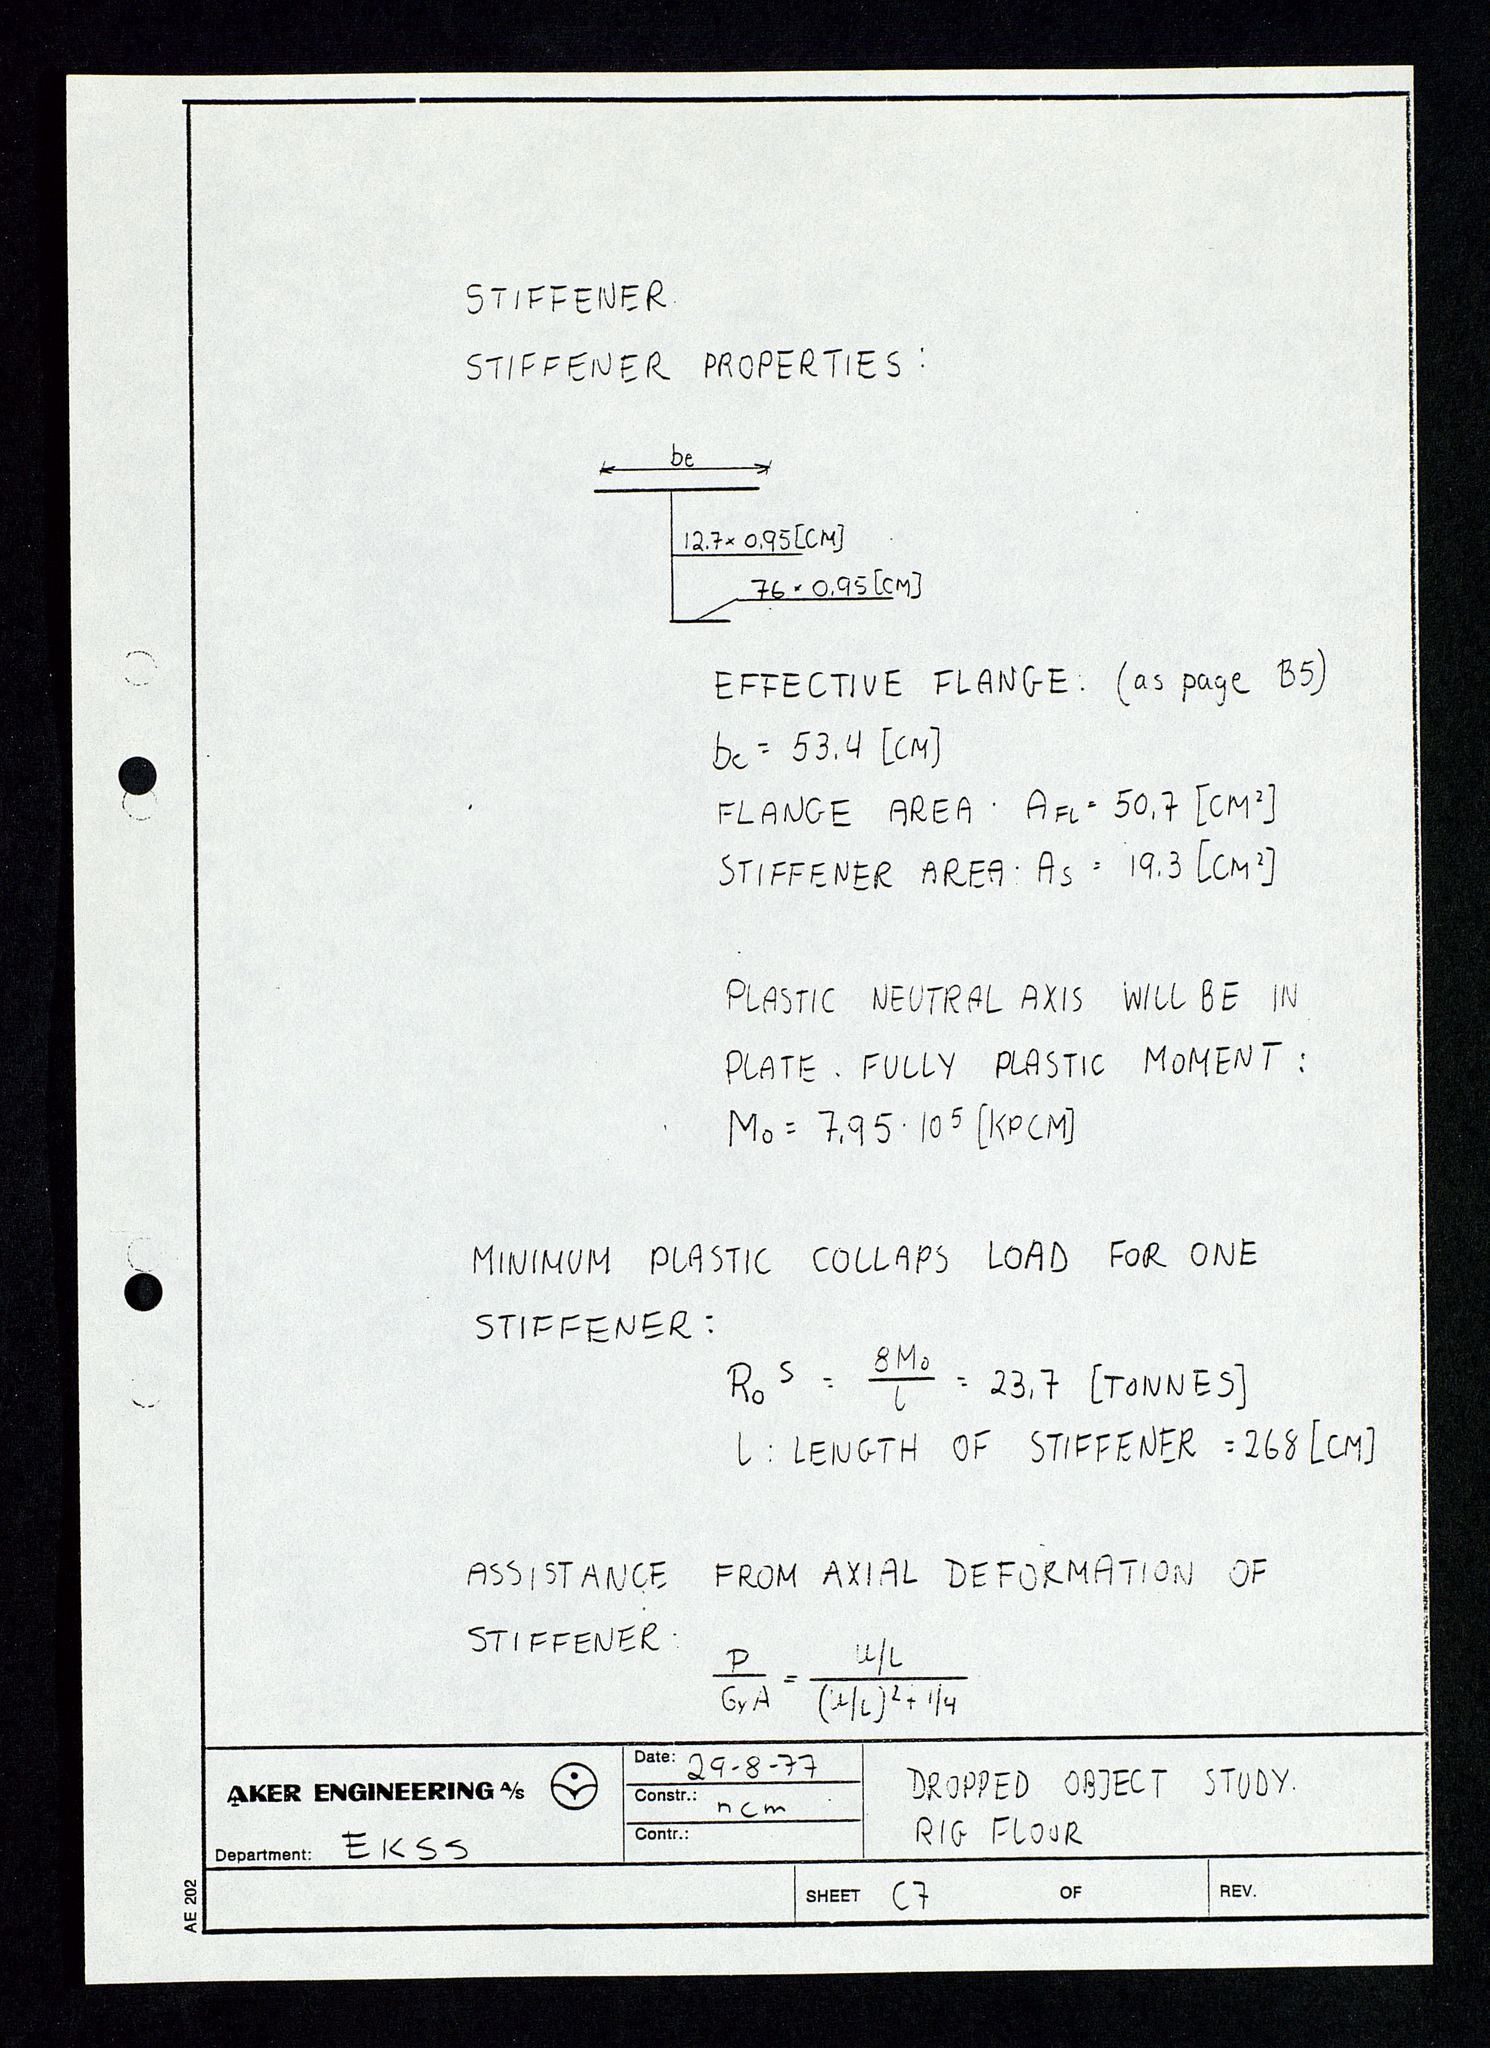 STIFFENER.
STIFFENER PROPERTIES:
be
12.7 × 0.95 [CM]
76 × 0.95 [CM]
EFFECTIVE FLANGE: (as page B5)
be = 53.4 [CM]
FLANGE AREA: AFL = 50.7 [CM²]
STIFFENER AREA: AS = 19.3 [CM²]
PLASTIC NEUTRAL AXIS WILL BE IN
PLATE. FULLY PLASTIC MOMENT:
M₀ = 7.95 · 10⁵ [KPCM]
MINIMUM PLASTIC COLLAPS LOAD FOR ONE
STIFFENER:
R₀ˢ = 8M₀/l = 23.7 [TONNES]
l: LENGTH OF STIFFENER = 268 [CM]
ASSISTANCE FROM AXIAL DEFORMATION OF
STIFFENER:
P/GyA = u/L / (u/L)² + 1/4
AKER ENGINEERING A/S
Department: EKSS
Date: 29-8-77
Constr.: ncm
Contr.:
DROPPED OBJECT STUDY.
RIG FLOUR
SHEET C7 OF
REV.
AE 202